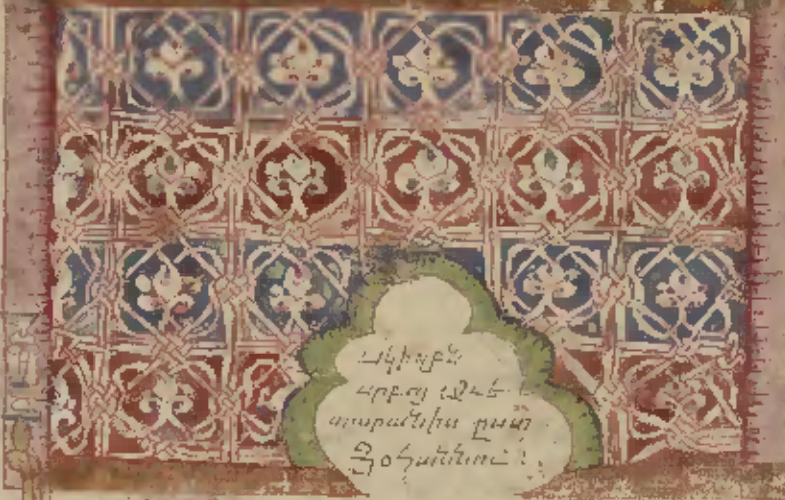 Սկիզբն
սրբոյ Աւե
տարանիս ըստ
Յօհաննու :